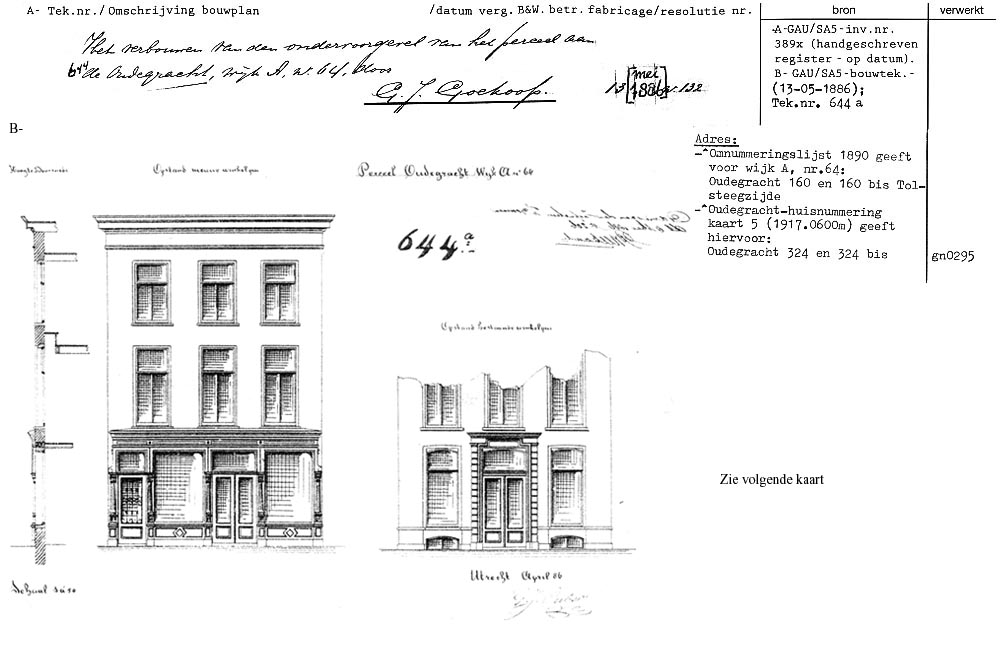 A- Tek.nr./Omschrijving bouwplan /datum verg. B&W. betr. fabricage/resolutie nr. bron verwerkt
Het verbouwen van den ondervoorgevel van het perceel aan
de Oudegracht, wijk A, nr. 64, door
G. J. Goekoop.
13 mei 1886 nr. 132
A-GAU/SA5-inv.nr.
389x (handgeschreven
register - op datum).
B- GAU/SA5-bouwtek.-
(13-05-1886);
Tek.nr. 644 a
B-
Adres:
-^Omnummeringslijst 1890 geeft
voor wijk A, nr.64:
Oudegracht 160 en 160 bis Tol-
steegzijde
-^Oudegracht-huisnummering
kaart 5 (1917.0600m) geeft
hiervoor:
Oudegracht 324 en 324 bis
gn0295
Hoogte Doorsnede
Opstand nieuwe winkelpui
Perceel Oudegracht Wijk A no 64
644 a
Opstand bestaande winkelpui
Zie volgende kaart
Utrecht April 86
Schaal 1 à 50